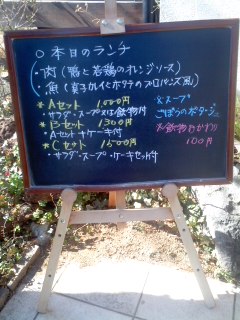 ○本日のランチ
・肉(鴨と若鶏のオレンジソース)
・魚(真子カレイとホタテのプロバンス風)
*Aセット 1,000円
・サラダ・スープ又は飲物付
*Bセット 1300円
・Aセット+ケーキ付
*Cセット 1500円
・サラダ・スープ・ケーキセット付
☆スープ
ごぼうのポタージュ
※飲物おかわり
100円